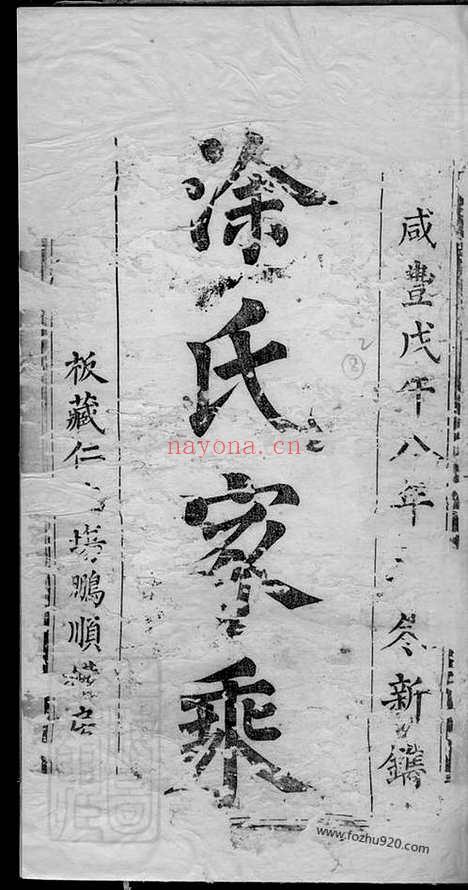 咸豐戊午八年 冬新鐫
涂氏家乘
板藏仁 塆鵬順
2
2
nayona.cn
www.fozhu920.com